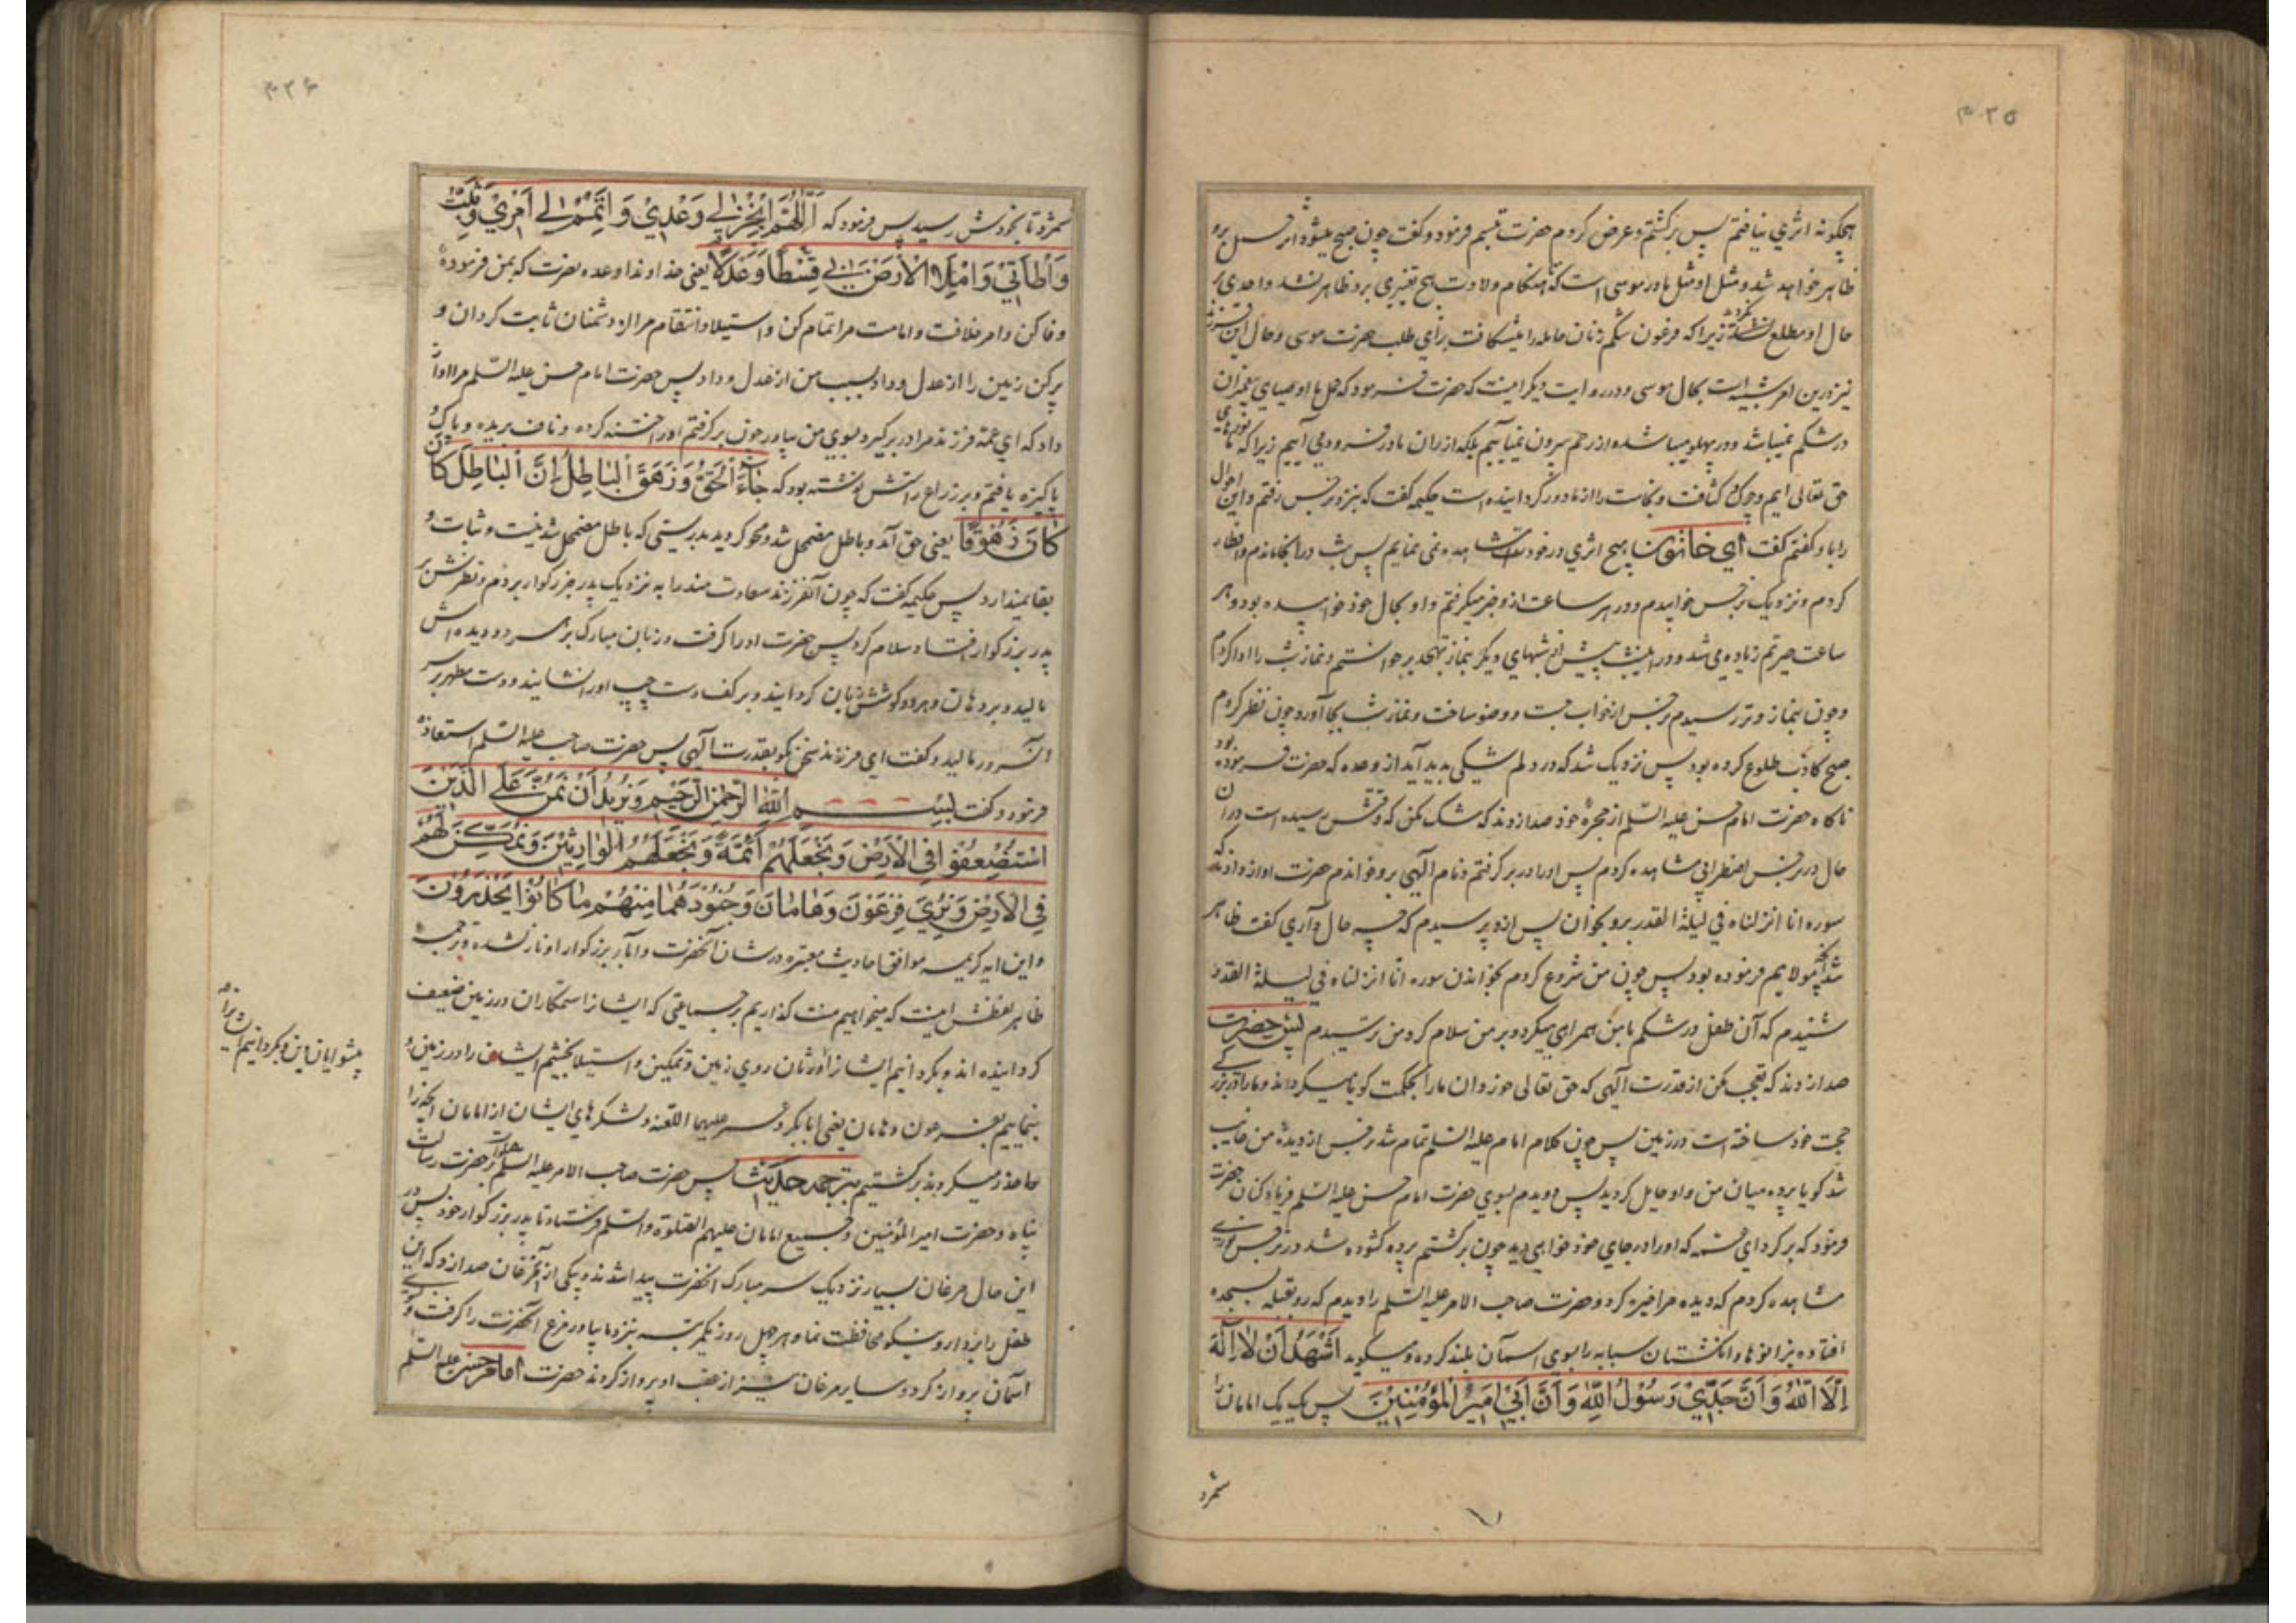 ۴۲۵
هیچگونه اثری نیافتم پس برگشتم و عرض کردم حضرت تبسم فرمود و گفت چون صبح میشود اثر حمل برو
ظاهر خواهد شد و مثل او مثل مادر موسی است که هنگام ولادت هیچ تغییری برو ظاهر نشد و احدی بر
حال او مطلع نگردید زیرا که فرعون شکم زنان حامله را میشکافت برای طلب حضرت موسی و حال این فرزند
نیز درین امر شبیه است بحال موسی و در روایت دیگر اینست که حضرت فرمود که حمل ما اوصیای پیغمبران
در شکم نمیباشد و در پهلو میباشد و از رحم بیرون نمیآییم بلکه از ران مادر فرود می آییم زیرا که ما نورهای
حق تعالی ایم و چرک و کثافت و نجاست را از ما دور گردانیده است حکیمه گفت که بنزد نرجس رفتم و این احوال
را باو گفتم گفت ای خاتون هیچ اثری در خود مشاهده نمی نمایم پس شب در آنجا ماندم و افطار
کردم و نزدیک نرجس خوابیدم و در هر ساعت از و خبر میگرفتم و او بحال خود خوابیده بود و هر
ساعت حیرتم زیاده می شد و در اینشب پیش از شبهای دیگر بنماز تهجد برخواستم و نماز شب را ادا کردم
و چون بنماز وتر رسیدم نرجس از خواب جست و وضو ساخت و نماز شب بجا آورد و چون نظر کردم
صبح کاذب طلوع کرده بود پس نزدیک شد که در دلم شکی پدید آید از وعده که حضرت فرموده بود
ناگاه حضرت امام حسن علیه السلم از حجره خود صدا زدند که شک مکن که وقتش رسیده است در آن
حال در نرجس اضطرابی مشاهده کردم پس او را در بر گرفتم و نام الهی برو خواندم حضرت آواز دادند که
سوره انا انزلناه فی لیلة القدر برو بخوان پس ازو پرسیدم که چه حال داری گفت ظاهر
شد آنچه مولایم فرموده بود پس چون من شروع کردم بخواندن سوره انا انزلناه فی لیلة القدر
شنیدم که آن طفل در شکم با من همراهی میکرد و بر من سلام کرد من ترسیدم پس حضرت
صدا زدند که تعجب مکن از قدرت الهی که حق تعالی خوردان ما را بحکمت گویا میگرداند و ما را در بزرگی
حجت خود ساخته است در زمین پس چون کلام امام علیه السلم تمام شد نرجس از دیده من غایب
شد گویا پرده میان من و او حایل گردید پس دویدم بسوی حضرت امام حسن علیه السلم فریاد کنان حضرت
فرمود که برگرد ای عمه که او را در جای خود خواهی دید چون برگشتم پرده گشوده شد در نرجس نوری
مشاهده کردم که دیده مرا خیره کرد و حضرت صاحب الامر علیه السلم را دیدم که رو بقبله بسجده
افتاده بزانوها و انگشتان سبابه را بسوی آسمان بلند کرده و میگوید اَشْهَدُ اَنْ لَا اِلٰهَ
اِلَّا اللّٰهُ وَ اَنَّ جَدِّیْ رَسُوْلُ اللّٰهِ وَ اَنَّ اَبِیْ اَمِیْرُ الْمُؤْمِنِیْنَ پس یک یک امامان را
شمرد
۴۲۶
شمرد تا بخودش رسید پس فرمود که اَللّٰهُمَّ اَنْجِزْ لِیْ وَعْدِیْ وَ اَتْمِمْ لِیْ اَمْرِیْ وَ ثَبِّتْ
وَ طْاَتِیْ وَ امْلَاِ الْاَرْضَ بِیْ قِسْطًا وَ عَدْلًا یعنی خداوندا وعده نصرت که بمن فرموده
وفا کن و امر خلافت و امامت مرا تمام کن و استیلا و انتقام مرا از دشمنان ثابت گردان و
پر کن زمین را از عدل و داد بسبب من از عدل و داد پس حضرت امام حسن علیه السلم مرا آواز
داد که ای عمه فرزند مرا در بر گیر و بسوی من بیاور چون برگرفتم او را ختنه کرده و ناف بریده و پاک و
پاکیزه یافتم و بر ذراع راستش نوشته بود که جَاءَ الْحَقُّ وَ زَهَقَ الْبَاطِلُ اِنَّ الْبَاطِلَ کَانَ
کَانَ زَهُوْقًا یعنی حق آمد و باطل مضمحل شد و محو گردید بدرستی که باطل مضمحل شدنیست و ثبات و
بقا نمیدارد پس حکیمه گفت که چون آنفرزند سعادت مند را به نزدیک پدر بزرگوار بردم و نظرش بر
پدر بزرگوار افتاد سلام کرد پس حضرت او را گرفت و زبان مبارک بر هر دو دیده اش
مالید و بر دهان و هر دو گوشش زبان گردانید و بر کف دست چپ او را نشانید و دست مطهر بر سر
آنسرور مالید و گفت ای فرزند سخن گو بقدرت الهی پس حضرت صاحب علیه السلم استعاذه
فرمود و گفت بِسْمِ اللّٰهِ الرَّحْمٰنِ الرَّحِیْمِ وَ نُرِیْدُ اَنْ نَمُنَّ عَلَی الَّذِیْنَ
اسْتُضْعِفُوْا فِی الْاَرْضِ وَ نَجْعَلَهُمْ اَئِمَّةً وَ نَجْعَلَهُمُ الْوَارِثِیْنَ وَ نُمَکِّنَ لَهُمْ
فِی الْاَرْضِ وَ نُرِیَ فِرْعَوْنَ وَ هَامَانَ وَ جُنُوْدَهُمَا مِنْهُمْ مَا کَانُوْا یَحْذَرُوْنَ
و این ایه کریمه موافق احادیث معتبره در شان آنحضرت و آباء بزرگوار او نازل شده و ترجمه
ظاهر لفظش اینست که میخواهیم منت گذاریم بر جماعتی که ایشانرا ستمکاران در زمین ضعیف
گردانیده اند و بگردانیم ایشانرا وارثان روی زمین و تمکین و استیلا بخشیم ایشان را در زمین و
بنماییم بفرعون و هامان یعنی ابابکر و عمر علیهما اللعنه و لشکرهای ایشان از امامان آنچه را
حذر میکردند برگشتیم بترجمه حدیث پس حضرت صاحب الامر علیه السلم صلوات بر حضرت رسالت
پناه و حضرت امیر المؤمنین و جمیع امامان علیهم الصلوة و السلم فرستاد تا پدر بزرگوار خود پس در
این حال مرغان بسیار نزدیک سر مبارک آنحضرت پیدا شدند و یکی از آنمرغان صدا زد که این
طفل را بردار و نیکو محافظت نما و هر چهل روز یکمرتبه بنزد ما بیاور مرغ آنحضرت را گرفت و بسوی
آسمان پرواز کرد و سایر مرغان نیز از عقب او پرواز کردند حضرت امام حسن علیه السلم